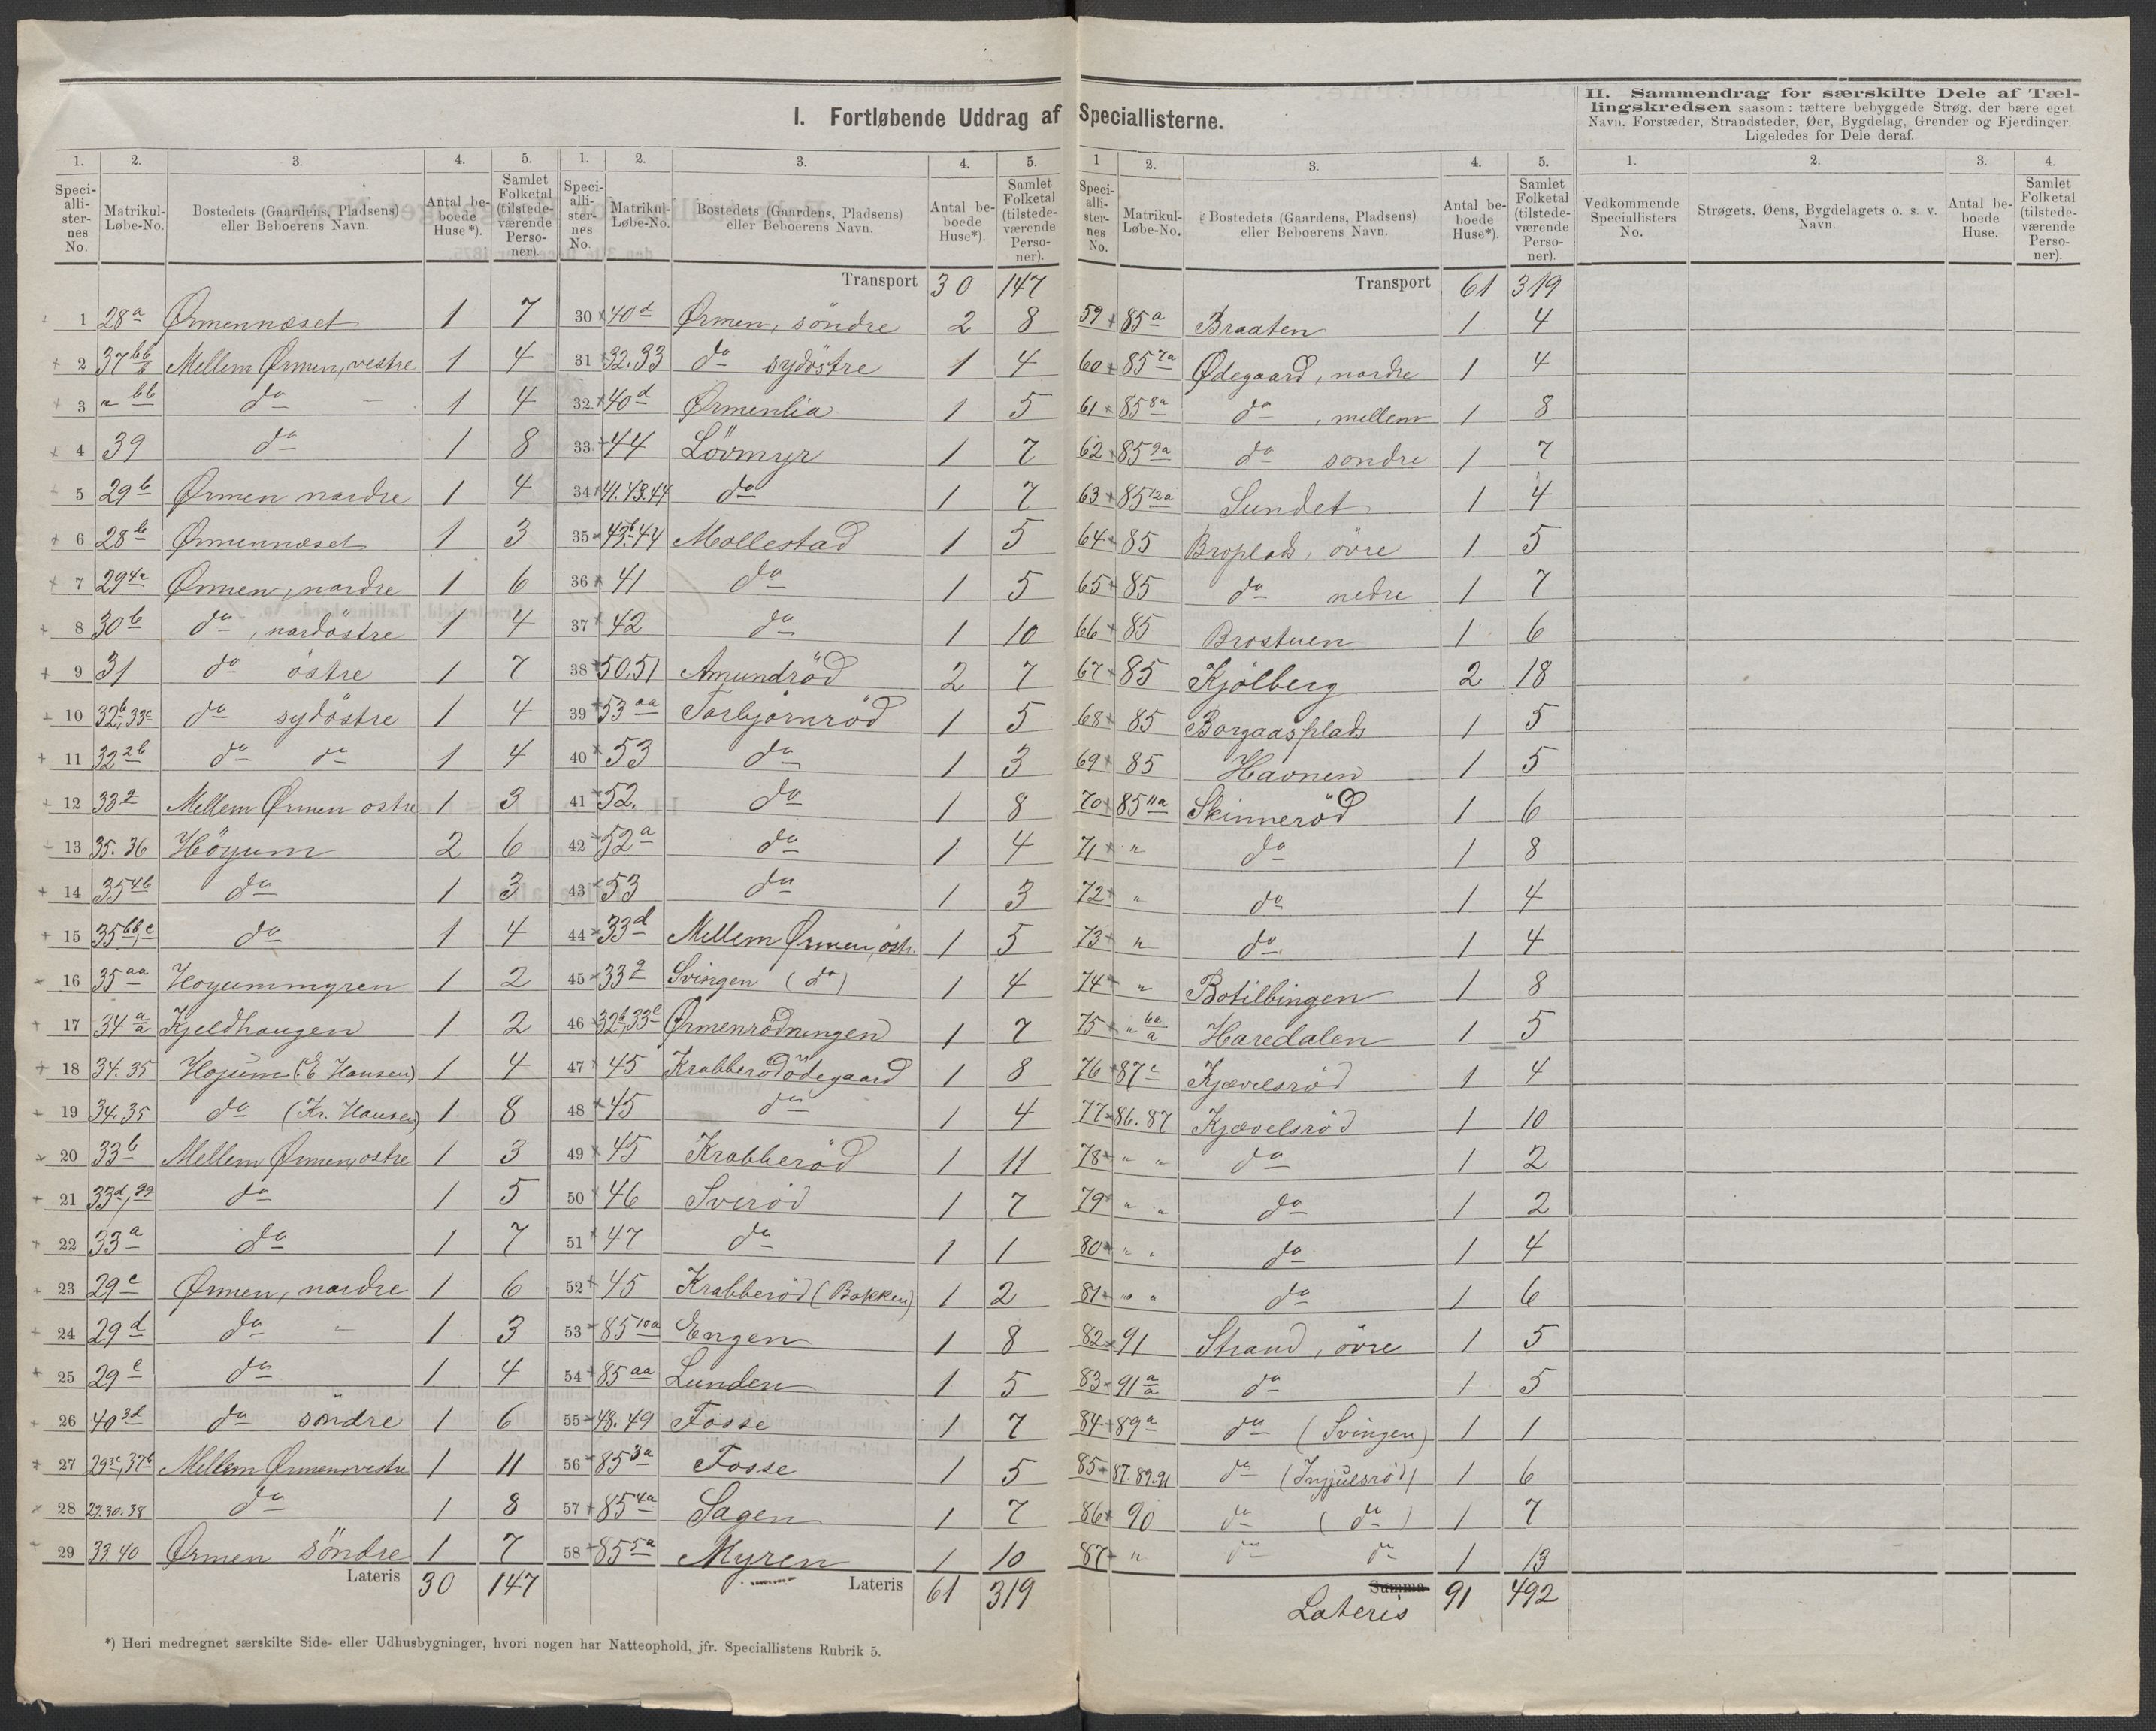 I. Fortløbende Uddrag af Speciallisterne.
II. Sammendrag for særskilte Dele af Tæl-
lingskredsen saasom: tættere bebyggede Strøg, der bære eget
Navn, Forstæder, Strandsteder, Øer, Bygdelag, Grender og Fjerdinger.
Ligeledes for Dele deraf.
1. 2. 3. 4. 5.
Speci-alli-ster-nes No. Matrikul-Løbe-No. Bostedets (Gaardens, Pladsens) eller Beboerens Navn. Antal be-boede Huse*). Samlet Folketal (tilstede-værende Perso-ner).
1 28a Ørmennæset 1 7
2 37bb/b Mellem Ørmen, vestre 1 4
3 " bb do - 1 4
4 39 do 1 8
5 29b Ørmen nordre 1 4
6 28b Ørmennæset 1 3
7 29 4a Ørmen, nordre 1 6
8 30b do, nordöstre 1 4
9 31 do östre 1 7
10 32b, 33c do sydöstre 1 4
11 32 2b do do 1 4
12 33 2 Mellem Ørmen ostre 1 3
13 35.36 Höyum 2 6
14 35 4b do 1 3
15 35 bb, c do 1 4
16 35aa Hoyummyren 1 2
17 34 a/a Kjeldhaugen 1 2
18 34.35 Hojum (E Hansen) 1 4
19 34.35 do (Kr. Hansen) 1 8
20 33b Mellem Ørmen, ostre 1 3
21 33d, gg do 1 5
22 33a do 1 7
23 29c Ørmen, nordre 1 6
24 29d do " 1 3
25 29e do 1 4
26 40 3d do söndre 1 6
27 29 3c, 37b Mellem Ørmen vestre 1 11
28 29.30.38 do 1 8
29 39.40 Ørmen söndre 1 7
Lateris 30 147
1. 2. 3. 4. 5.
Speci-alli-ster-nes No. Matrikul-Løbe-No. Bostedets (Gaardens, Pladsens) eller Beboerens Navn. Antal be-boede Huse*). Samlet Folketal (tilstede-værende Perso-ner).
Transport 30 147
30 40d Ørmen, söndre 2 8
31 32.33 do sydöstre 1 4
32 40d Ørmenlia 1 5
33 44 Lövmyr 1 7
34 41.43.44 do 1 7
35 43b.44 Mollestad 1 5
36 41 do 1 5
37 42 do 1 10
38 50.51 Amundröd 2 7
39 53aa Torbjörnröd 1 5
40 53 do 1 3
41 52. do 1 8
42 52a do 1 4
43 53 do 1 3
44 33d Mellem Ørmen, östr. 1 5
45 33 2 Svingen (do) 1 4
46 32b, 33c Ørmenrödningen 1 7
47 45 Krabberödödegaard 1 8
48 45 do 1 4
49 45 Krabberöd 1 11
50 46 Sviröd 1 7
51 47 do 1 1
52 45 Krabberöd (Bakken) 1 2
53 85 10a Engen 1 8
54 85aa Lunden 1 5
55 48.49 Fosse 1 7
56 85 3a Fosse 1 5
57 85 4a Sagen 1 7
58 85 5a Myren 1 10
Lateris 61 319
1 2. 3. 4. 5.
Speci-alli-ster-nes No. Matrikul-Løbe-No. Bostedets (Gaardens, Pladsens) eller Beboerens Navn. Antal be-boede Huse*). Samlet Folketal (tilstede-værende Perso-ner).
Transport 61 319
59 85a Braaten 1 4
60 85 7a Ødegaard, nordre 1 4
61 85 8a do, mellem 1 8
62 85 9a do sondre 1 7
63 85 12a Sundet 1 4
64 85 Broplads, övre 1 5
65 85 do nedre 1 7
66 85 Brostuen 1 6
67 85 Kjölberg 2 18
68 85 Borgaasplads 1 5
69 85 Havnen 1 5
70 85 11a Skinneröd 1 6
71 " do 1 8
72 " do 1 4
73 " do 1 4
74 " Botilbingen 1 8
75 " 6a/a Haredalen 1 5
76 87c Kjævelsröd 1 4
77 86.87 Kjævelsröd 1 10
78 " " do 1 2
79 " " do 1 2
80 " " do 1 4
81 " " do 1 6
82 91 Strand, övre 1 5
83 91 a/a do 1 5
84 89a do (Svingen) 1 1
85 87.89.91 do (Ingjulsröd) 1 6
86 90 do (do) 1 7
87 " do do 1 13
Summa
Lateris 91 492
1. 2. 3. 4.
Vedkommende Speciallisters No. Strøgets, Øens, Bygdelagets o. s. v. Navn. Antal be-boede Huse. Samlet Folketal (tilstede-værende Perso-ner).
*) Heri medregnet særskilte Side- eller Udhusbygninger, hvori nogen har Natteophold, jfr. Speciallistens Rubrik 5.